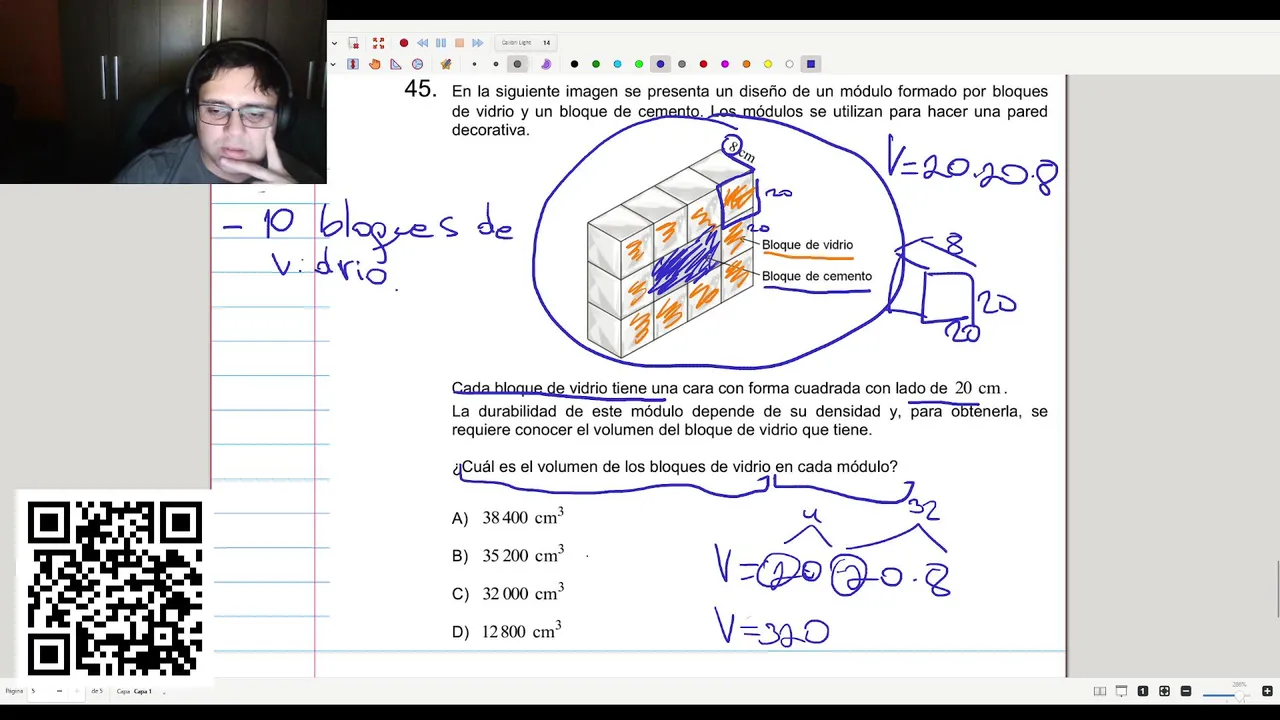 Calibri Light 14
45. En la siguiente imagen se presenta un diseño de un módulo formado por bloques
de vidrio y un bloque de cemento. Los módulos se utilizan para hacer una pared
decorativa.
8 cm
V=20.20.8
- 10 bloques de
vidrio.
20
20
Bloque de vidrio
Bloque de cemento
8
20
20
Cada bloque de vidrio tiene una cara con forma cuadrada con lado de 20 cm.
La durabilidad de este módulo depende de su densidad y, para obtenerla, se
requiere conocer el volumen del bloque de vidrio que tiene.
¿Cuál es el volumen de los bloques de vidrio en cada módulo?
A) 38 400 cm³
B) 35 200 cm³
C) 32 000 cm³
D) 12 800 cm³
4 32
V=20 20.8
V=320
Página 5 de 5 Capa Capa 1
1